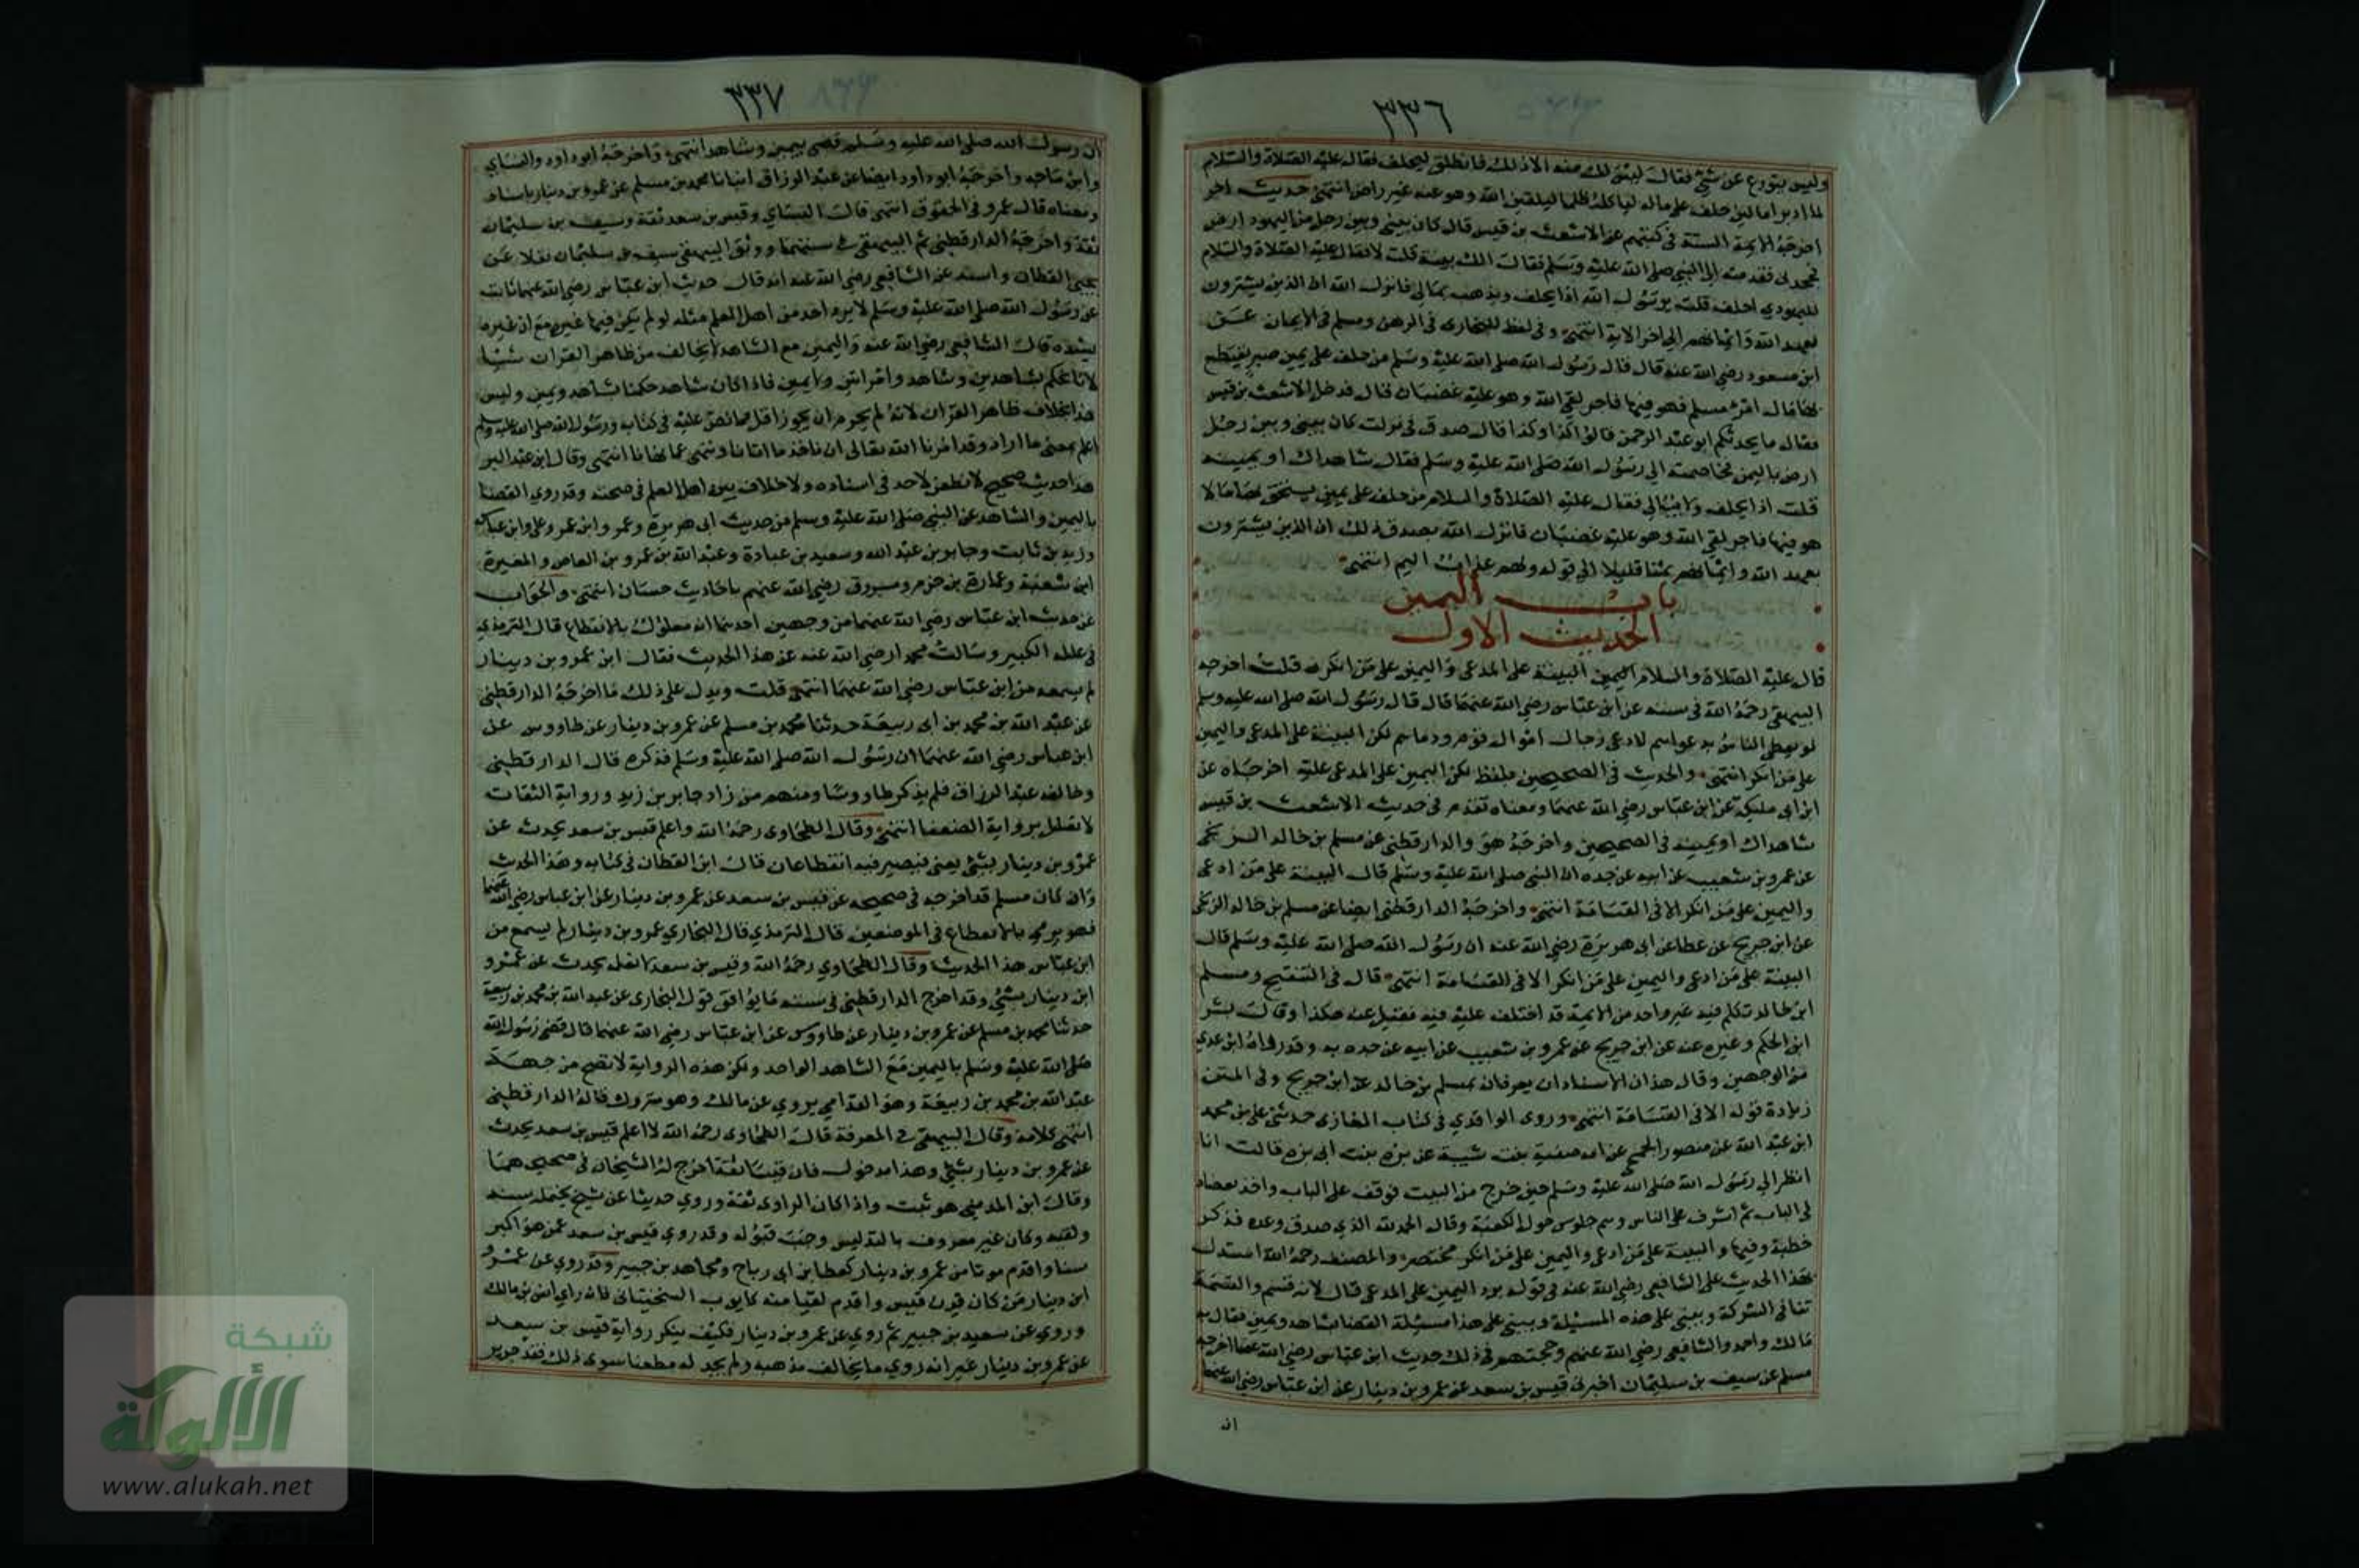 ٣٣٦
وليس يتورع عن شئ فقال ليس لك منه الا ذلك فانطلق ليحلف فقال عليه الصلاة والسلام
لما ادبر اما لين حلف على ماله لياكله ظلما ليلقين الله وهو عنه غير راض انتهى حديث اخر
اخرجه الايمة الستة في كتبهم عن الاشعث بن قيس قال كان بيني وبين رجل من اليهود ارض
فجحدني فقدمته الى النبي صلى الله عليه وسلم فقال الك بينة قلت لا فقال عليه الصلاة والسلام
لليهودي احلف قلت يرسول الله اذا يحلف ويذهب بمالي فانزل الله ان الذين يشترون
بعهد الله وايمانهم الى اخر الاية انتهى وفي لفظ للبخارى في الرهن ومسلم في الايمان عن
ابن مسعود رضي الله عنه قال قال رسول الله صلى الله عليه وسلم من حلف على يمين صبر يقتطع
بها مال امرئ مسلم هو فيها فاجر لقي الله وهو عليه غضبان قال فدخل الاشعث بن قيس
فقال ما يحدثكم ابو عبد الرحمن قالوا كذا وكذا قال صدق في نزلت كان بيني وبين رجل
ارض باليمن فخاصمته الى رسول الله صلى الله عليه وسلم فقال شاهداك او يمينه
قلت اذا يحلف ولا يبالي فقال عليه الصلاة والسلام من حلف على يمين يستحق بها مالا
هو فيها فاجر لقي الله وهو عليه غضبان فانزل الله تصديق ذلك ان الذين يشترون
بعهد الله وايمانهم ثمنا قليلا الى قوله ولهم عذاب اليم انتهى
باب اليمين
الحديث الاول
قال عليه الصلاة والسلام اليمين البينة على المدعى واليمين على من انكر قلت اخرجه
البيهقي رحمه الله في سننه عن ابن عباس رضي الله عنهما قال قال رسول الله صلى الله عليه وسلم
لو يعطى الناس بدعواهم لادعى رجال اموال قوم ودماهم لكن البينة على المدعى واليمين
على من انكر انتهى والحديث في الصحيحين بلفظ لكن اليمين على المدعى عليه اخرجاه عن
ابن ابي مليكة عن ابن عباس رضي الله عنهما ومعناه تقدم في حديث الاشعث بن قيس
شاهداك او يمينه في الصحيحين واخرجه هو والدارقطني عن مسلم بن خالد الزنجي
عن عمرو بن شعيب عن ابيه عن جده ان النبي صلى الله عليه وسلم قال البينة على من ادعى
واليمين على من انكر الا في القسامة انتهى واخرجه الدارقطني ايضا عن مسلم بن خالد الزنجي
عن ابن جريج عن عطا عن ابي هريرة رضي الله عنه ان رسول الله صلى الله عليه وسلم قال
البينة على من ادعى واليمين على من انكر الا في القسامة انتهى قال في التنقيح ومسلم
ابن خالد تكلم فيه غير واحد من الايمة قد اختلف عليه فيه فقيل عنه هكذا وقال بشر
ابن الحكم وغيره عنه عن ابن جريج عن عمرو بن شعيب عن ابيه عن جده به وقد رواه ابن عدي
من الوجهين وقال هذان الاسنادان يعرفان بمسلم بن خالد عن ابن جريج وفي المتن
زيادة قوله الا في القسامة انتهى وروى الواقدي في كتاب المغازى حدثني علي بن محمد
ابن عبد الله عن منصور الحجي عن امه صفية بنت شيبة عن بره بنت ابي بره قالت انا
انظر الى رسول الله صلى الله عليه وسلم حين خرج من البيت فوقف على الباب واخذ بعضاد
تي الباب ثم اشرف على الناس وهم جلوس حول الكعبة وقال الحمد لله الذي صدق وعده فذكر
خطبة وفيها والبينة على من ادعى واليمين على من انكر مختصر والمصنف رحمه الله استدل
بهذا الحديث على الشافعي رضي الله عنه في قوله برد اليمين على المدعى قال لانه قسم والقسمة
تنافي الشركة وبنى على هذه المسئلة ويبنى على هذا مسئلة القضا بشاهد ويمين فقال به
مالك واحمد والشافعي رضي الله عنهم وحجتهم في ذلك حديث ابن عباس رضي الله عنهما اخرجه
مسلم عن سيف بن سليمان اخبرني قيس بن سعد عن عمرو بن دينار عن ابن عباس رضي الله عنهما
ان
٣٣٧
ان رسول الله صلى الله عليه وسلم قضى بيمين وشاهد انتهى واخرجه ابو داود والنساي
وابن ماجه واخرجه ابو داود ايضا عن عبد الرزاق انبانا محمد بن مسلم عن عمرو بن دينار باسناده
ومعناه قال عمرو في الحقوق انتهى قال النساي وقيس بن سعد ثقة وسيف بن سليمان
ثقة واخرجه الدارقطني ثم البيهقي في سننهما ووثق البيهقي سيف بن سليمان نقلا عن
يحيى القطان واسند عن الشافعي رضي الله عنه انه قال حديث ابن عباس رضي الله عنهما ثابت
عن رسول الله صلى الله عليه وسلم لا يرد احد من اهل العلم مثله لو لم يكن فيها غيره مع ان غيره ما
يشده قال الشافعي رضي الله عنه واليمين مع الشاهد لا يخالف من ظاهر القران شيا
لانا نحكم بشاهدين وشاهد وامراتين ولا يمين فاذا كان شاهد حكمنا بشاهد ويمين وليس
هذا بخلاف ظاهر القران لانه لم يحرم ان يجوز اقل مما نص عليه في كتابه ورسول الله صلى الله عليه وسلم
اعلم بمعنى ما اراد وقد امرنا الله تعالى ان ناخذ ما اتانا وننتهى عما نهانا انتهى وقال ابن عبد البر
هذا حديث صحيح لا نطعن لاحد في اسناده ولا خلاف بين اهل العلم في صحته وقد روي القضا
باليمين والشاهد عن النبي صلى الله عليه وسلم من حديث ابي هريرة وعمر وابن عمر وعلى وابن عباس
وزيد بن ثابت وجابر بن عبد الله وسعيد بن عبادة وعبد الله بن عمرو بن العاص والمغيرة
ابن شعبة وعمارة بن حزم وسرق رضي الله عنهم باحاديث حسان انتهى والجواب
عن حديث ابن عباس رضي الله عنهما من وجهين احدهما انه معلول بالانقطاع قال الترمذي
في علله الكبير وسالت محمدا رضي الله عنه عن هذا الحديث فقال ابن عمرو بن دينار
لم يسمعه من ابن عباس رضي الله عنهما انتهى قلت ويدل على ذلك ما اخرجه الدارقطني
عن عبد الله بن محمد بن ابي ربيعة حدثنا محمد بن مسلم عن عمرو بن دينار عن طاووس عن
ابن عباس رضي الله عنهما ان رسول الله صلى الله عليه وسلم فذكره قال الدارقطني
وخالفه عبد الرزاق فلم يذكر طاووسا ومنهم من زاد جابر بن زيد ورواية الثقات
لا تعلل برواية الضعفا انتهى وقال الطحاوى رحمه الله واعلم قيس بن سعد يحدث عن
عمرو بن دينار بشئ يعنى فيصير فيه انقطاعان قال ابن القطان في كتابه وهذا الحديث
وان كان مسلم قد اخرجه في صحيحه عن قيس بن سعد عن عمرو بن دينار عن ابن عباس رضي الله عنهما
فهو يرمى بالانقطاع في الموضعين قال الترمذي قال البخاري عمرو بن دينار لم يسمع من
ابن عباس هذا الحديث وقال الطحاوي رحمه الله وقيس بن سعد لا نعلمه يحدث عن عمرو
ابن دينار بشئ وقد اخرج الدارقطني في سننه ما يوافق قول البخارى عن عبد الله بن محمد بن ربيعة
حدثنا محمد بن مسلم عن عمرو بن دينار عن طاووس عن ابن عباس رضي الله عنهما قال قضى رسول الله
صلى الله عليه وسلم باليمين مع الشاهد الواحد ولكن هذه الرواية لا تصح من جهة
عبد الله بن محمد بن ربيعة وهو القدامي يروي عن مالك وهو متروك قاله الدارقطني
انتهى كلامه وقال البيهقي في المعرفة قال الطحاوى رحمه الله لا اعلم قيس بن سعد يحدث
عن عمرو بن دينار بشئ وهذا مدخول فان قيسا ثقة اخرج له الشيخان في صحيحيهما
وقال ابن المديني هو ثبت واذا كان الراوى ثقة وروي حديثا عن شيخ يحتمله سنه
ولقيه وكان غير معروف بالتدليس وجب قبوله وقد روي قيس بن سعد عمن هو اكبر
سنا واقدم موتا من عمرو بن دينار كعطا بن ابي رباح ومجاهد بن جبير وقد روي عن عمرو
ابن دينار من كان قرن قيس واقدم لقيا منه كايوب السختياني فانه راي انس بن مالك
وروي عن سعيد بن جبير ثم روي عن عمرو بن دينار فكيف ينكر رواية قيس بن سعد
عن عمرو بن دينار غير انه روي ما يخالف مذهبه ولم يجد له مطعنا سوى ذلك فقد جرير
شبكة
الألوكة
www.alukah.net